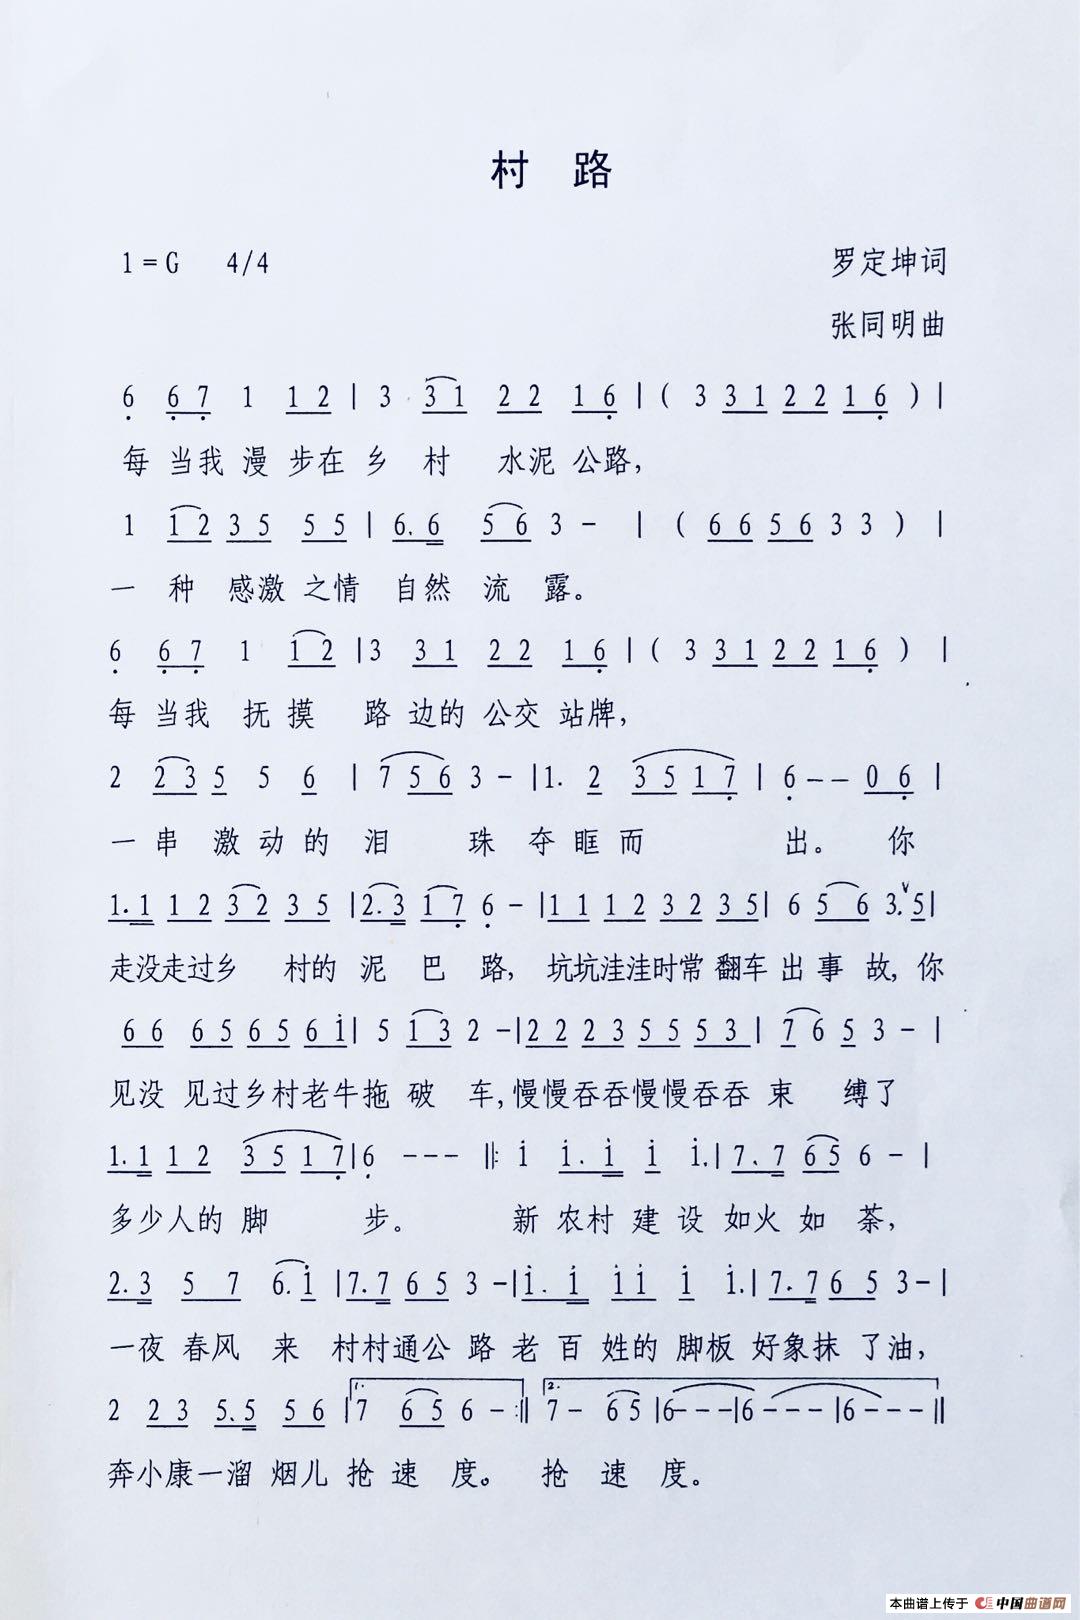 村 路
1=G 4/4 罗定坤词
张同明曲
6 6 7 1 1 2 | 3 3 1 2 2 1 6 | ( 3 3 1 2 2 1 6 ) |
每 当我 漫 步在 乡 村 水泥 公路，
1 1 2 3 5 5 5 | 6. 6 5 6 3 - | ( 6 6 5 6 3 3 ) |
一 种 感激 之情 自然 流 露。
6 6 7 1 1 2 | 3 3 1 2 2 1 6 | ( 3 3 1 2 2 1 6 ) |
每 当我 抚 摸 路 边的 公交 站牌，
2 2 3 5 5 6 | 7 5 6 3 - | 1. 2 3 5 1 7 | 6 - - 0 6 |
一 串 激 动 的 泪 珠 夺 眶 而 出。 你
1. 1 1 2 3 2 3 5 | 2. 3 1 7 6 - | 1 1 1 2 3 2 3 5 | 6 5 6 3. 5 |
走没走过乡 村的 泥 巴 路， 坑坑洼洼时常 翻车 出 事 故，你
6 6 6 5 6 5 6 i | 5 1 3 2 - | 2 2 2 3 5 5 5 3 | 7 6 5 3 - |
见没 见过乡村老牛拖 破 车，慢慢吞吞慢慢吞吞 束 缚了
1. 1 1 2 3 5 1 7 | 6 - - - ‖: i i. i i i. | 7. 7 6 5 6 - |
多少人的 脚 步。 新 农村 建 设 如火 如 荼，
2. 3 5 7 6. i | 7. 7 6 5 3 - | i. i i i i i. | 7. 7 6 5 3 - |
一夜 春风 来 村村通公 路 老 百 姓的 脚板 好象抹 了油，
2 2 3 5. 5 5 6 | 1. 7 6 5 6 - :‖ 2. 7 - 6 5 | 6 - - - | 6 - - - | 6 - - - ‖
奔小康一溜 烟儿 抢 速 度。 抢 速 度。
本曲谱上传于 中国曲谱网